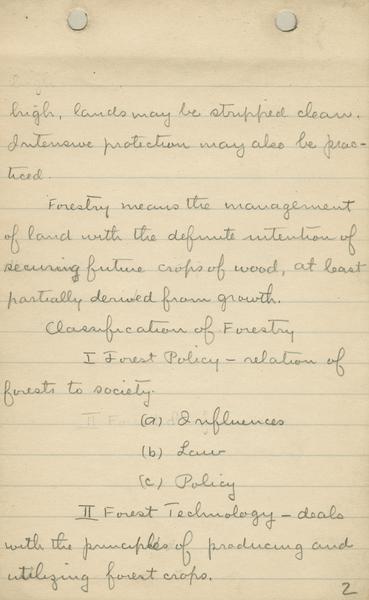 high, lands may be stripped clean.
Intensive protection may also be prac-
ticed.
Forestry means the management
of land with the definite intention of
securing future crops of wood, at least
partially derived from growth.
Classification of Forestry
I Forest Policy - relation of
forests to society.
(a) Influences
(b) Law
(c) Policy
II Forest Technology - deals
with the principles of producing and
utilizing forest crops.
2